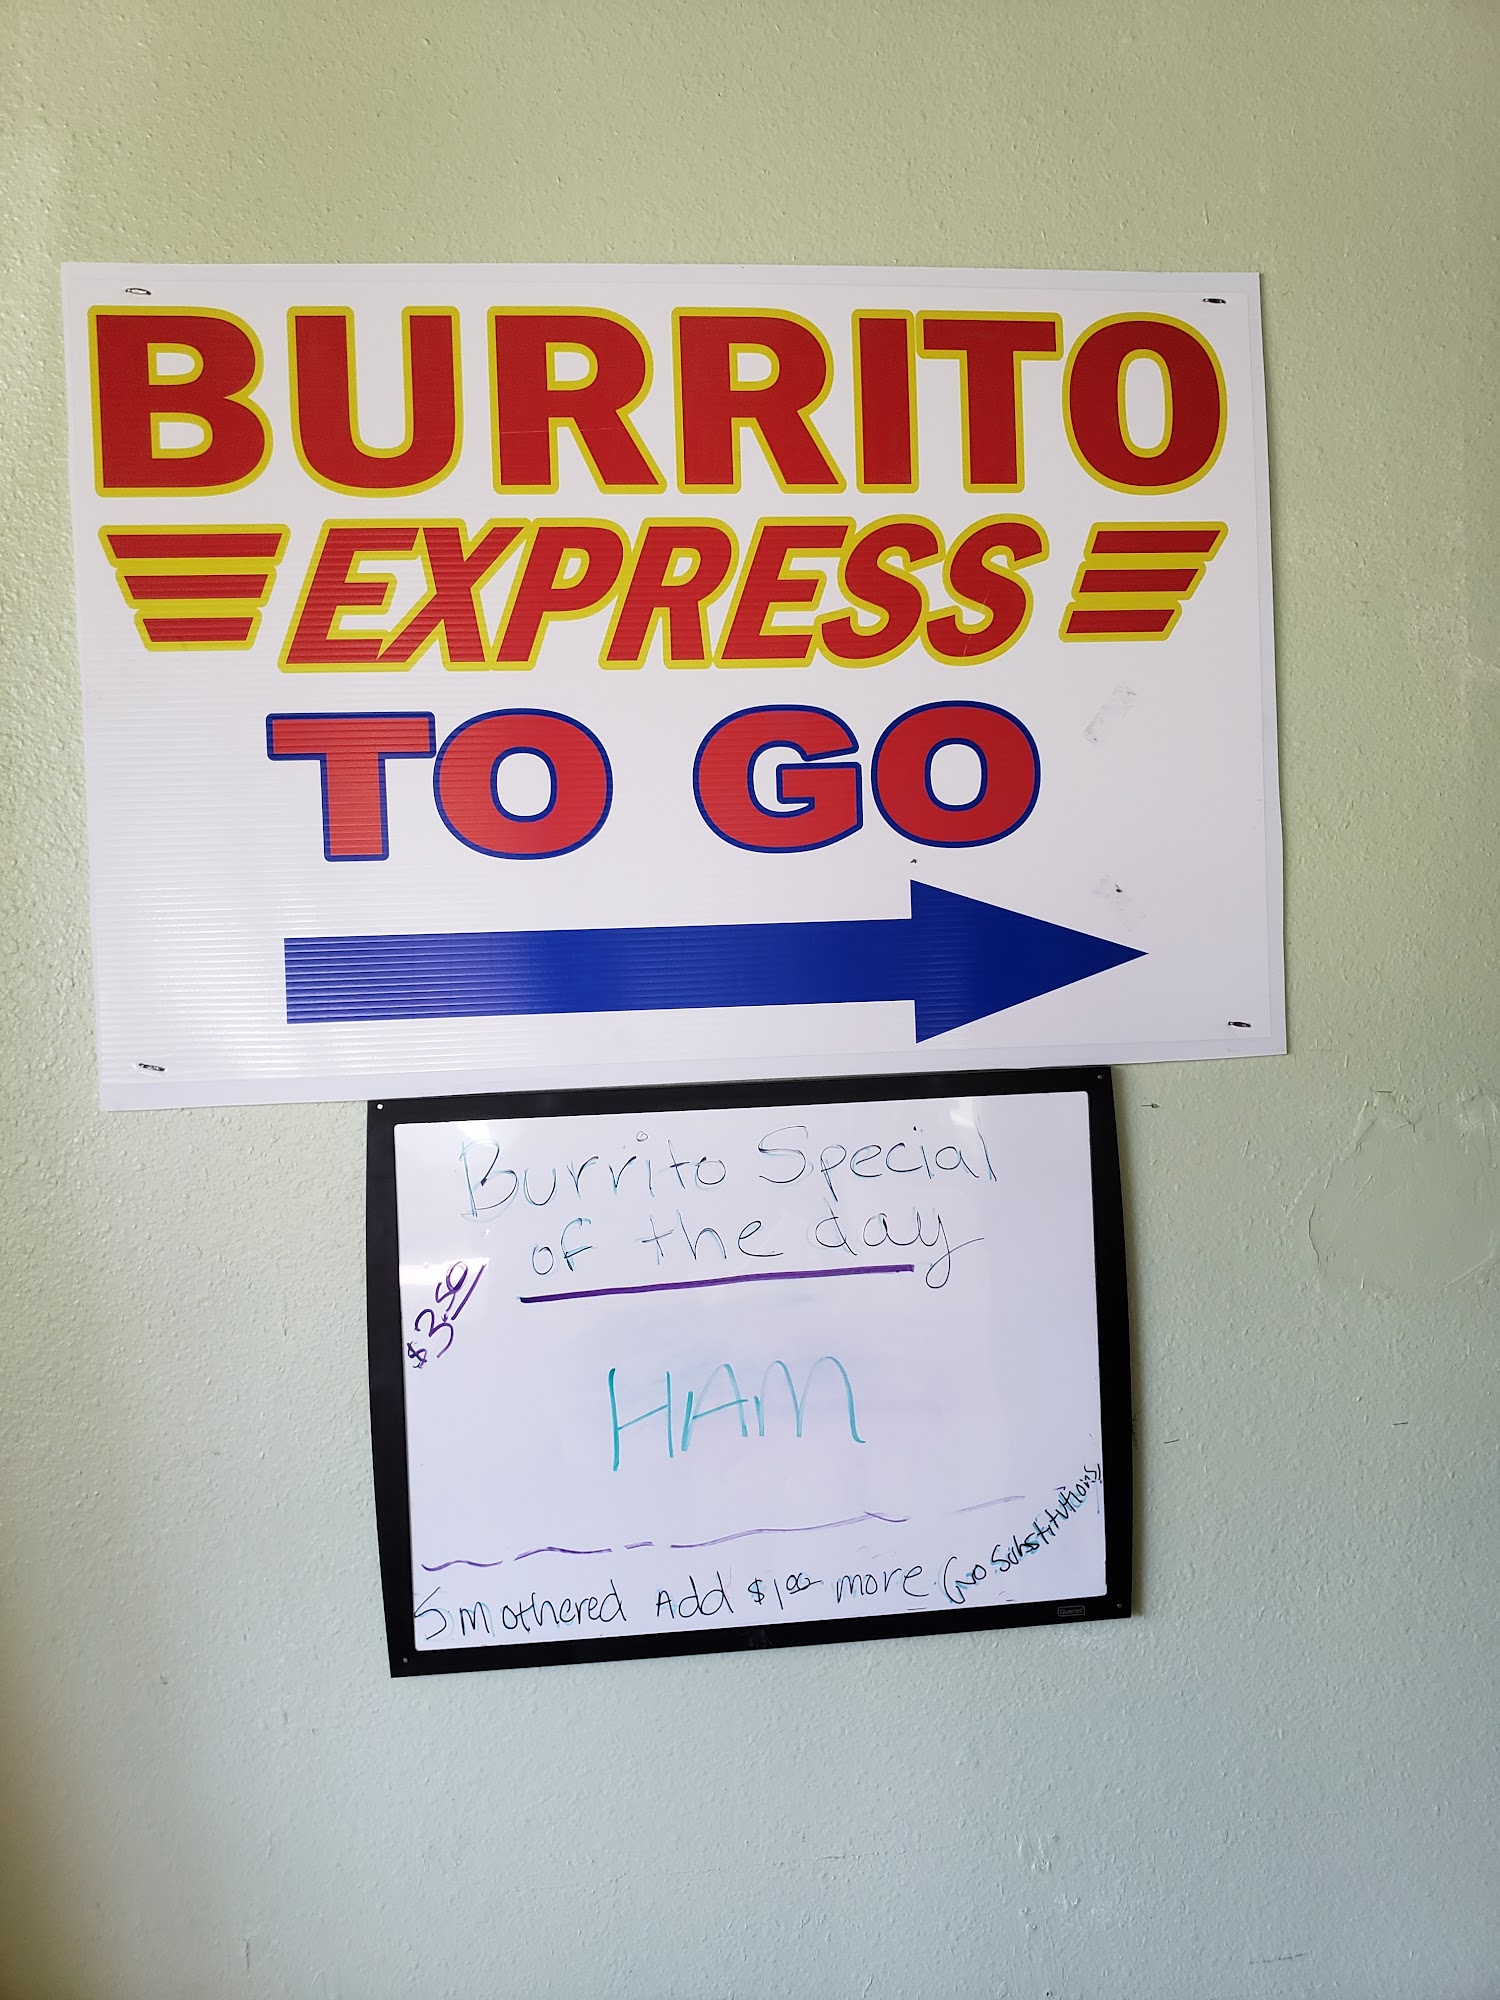 BURRITO
EXPRESS
TO GO
Burrito Special
of the day
$3.50
HAM
Smothered Add $1.00 more (no substitutions)
Quartet